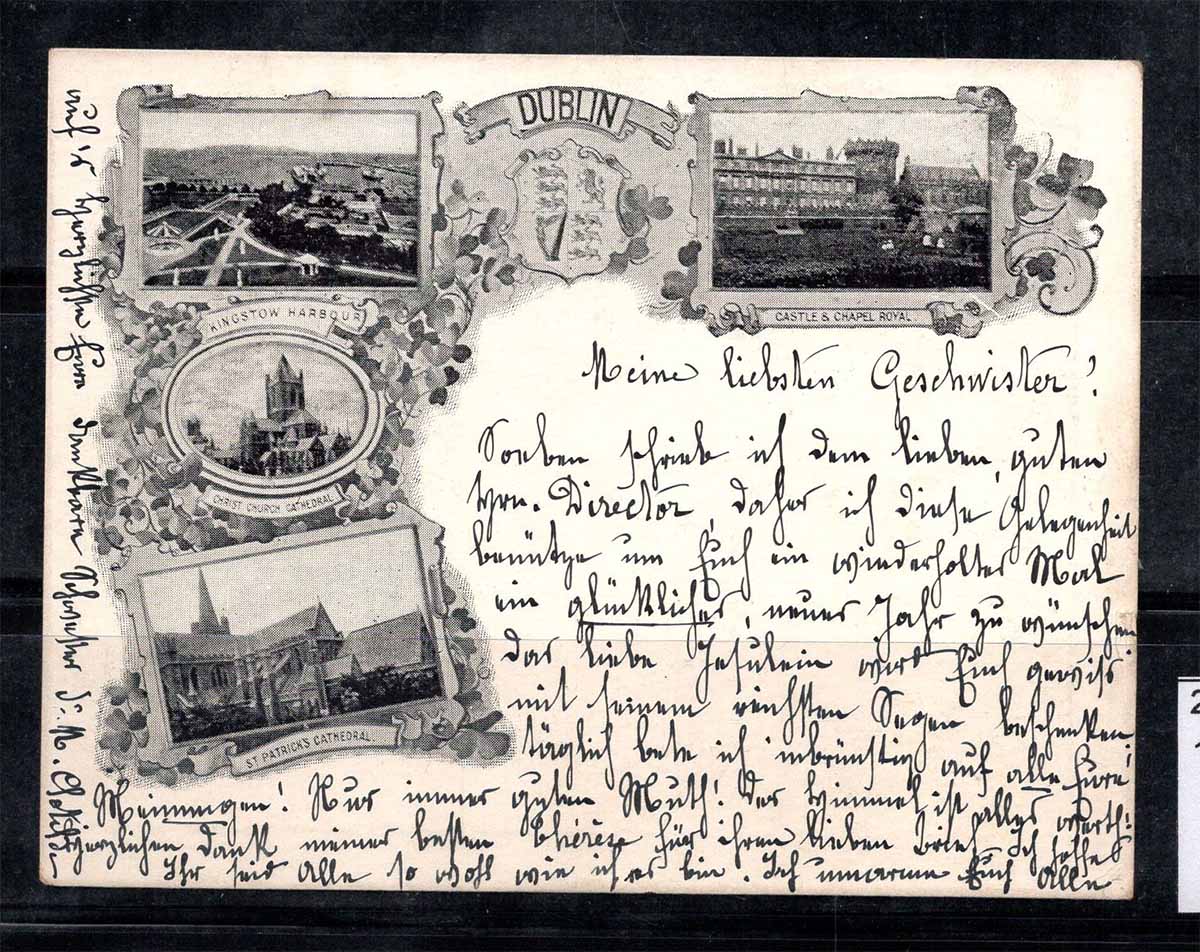 DUBLIN
KINGSTOW HARBOUR
CASTLE & CHAPEL ROYAL.
CHRIST CHURCH CATHEDRAL
ST PATRICK'S CATHEDRAL.
Meine liebsten Geschwister!
Soeben schrieb ich dem lieben, guten
Hrn. Director, daher ich diese Gelegenheit
benütze um Euch ein wiederholtes Mal
ein glückliches, neues Jahr zu wünschen
das liebe Jesulein wird Euch gewiss
mit seinem reichsten Segen beschenken
täglich bete ich inbrünstig auf alle Eure
Meinungen! Nur immer guten Muth! Der Himmel ist alles werth!
Herzlichen Dank meiner besten Thérèse für ihren lieben Brief. Ich hoffe
Ihr seid Alle so wohl wie ich es bin. Ich umarme Euch Alle
dankbare Schwester